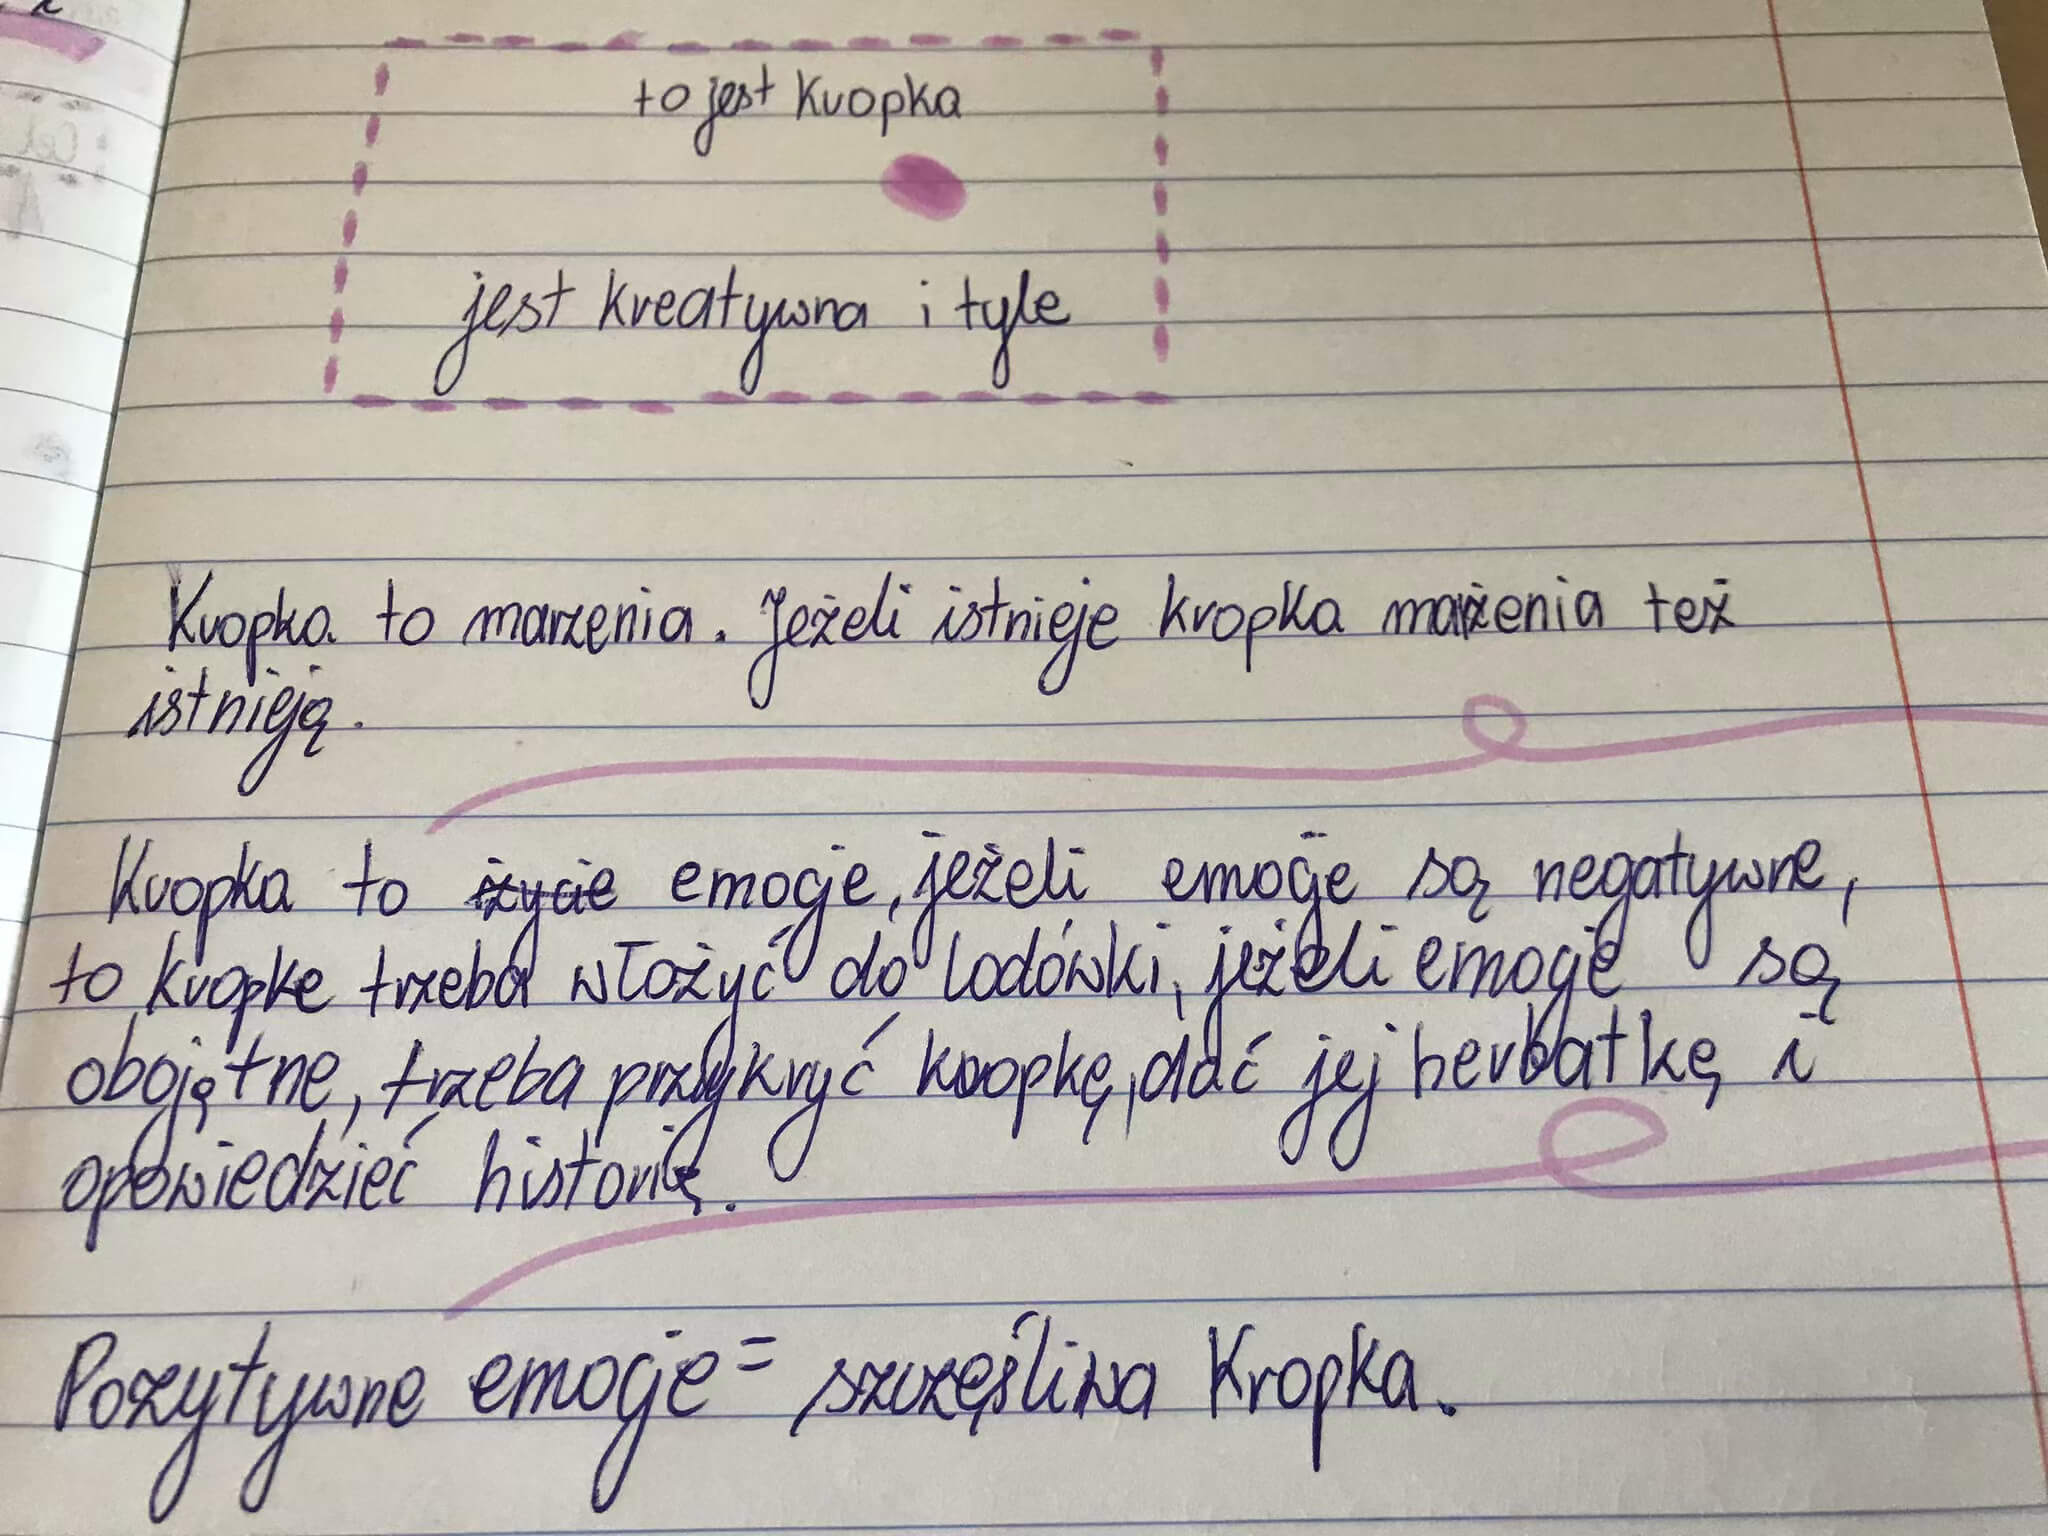 to jest Kropka
jest kreatywna i tyle
Kropka to marzenia. Jeżeli istnieje kropka marzenia też
istnieją.
Kropka to życie emocje, jeżeli emocje są negatywne,
to kropke trzeba włożyć do lodówki, jeżeli emocje są
obojętne, trzeba przykryć kropkę, dać jej herbatkę i
opowiedzieć historię.
Pozytywne emocje = szczęśliwa Kropka.